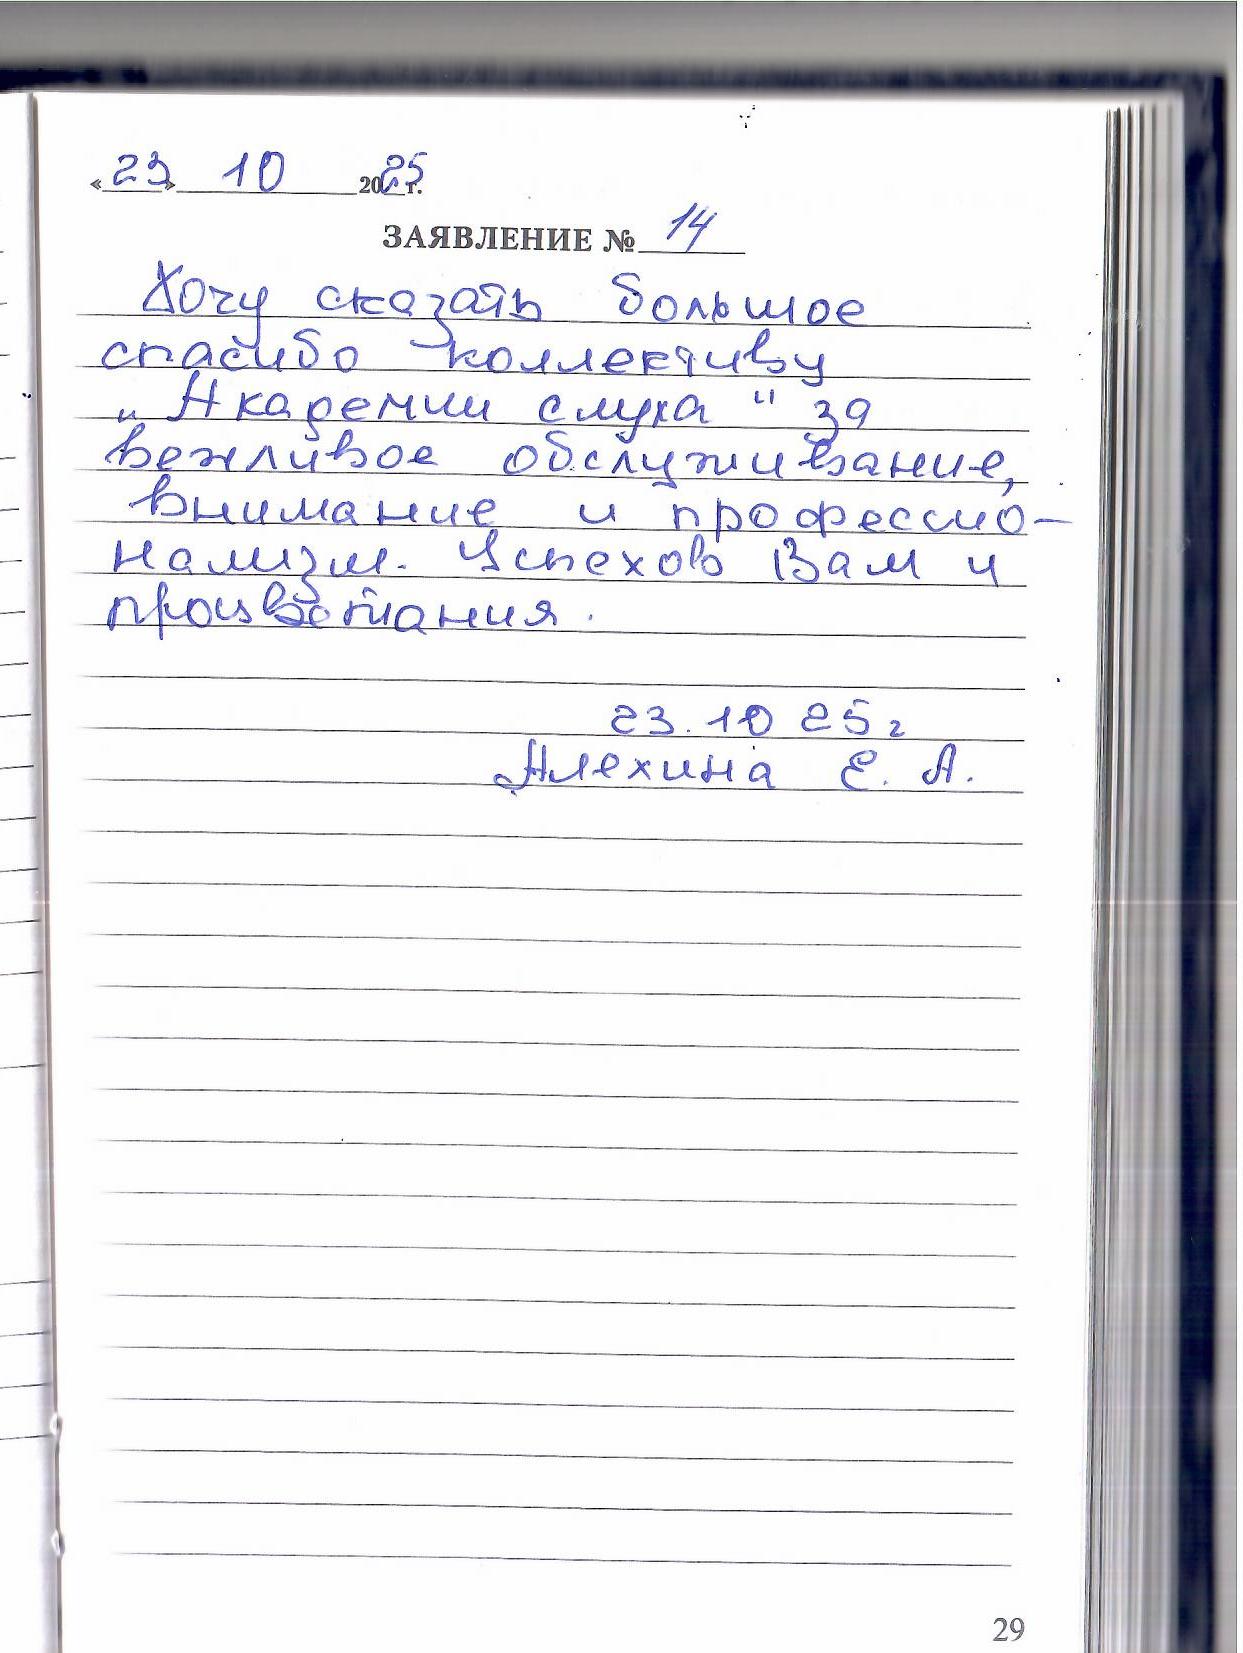 «23» 10 2025 г.
ЗАЯВЛЕНИЕ № 14
Хочу сказать большое
спасибо коллективу
„Академии слуха" за
вежливое обслуживание,
внимание и профессио-
нализм. Успехов Вам и
процветания.
23.10 25 г
Алехина Е. А.
29